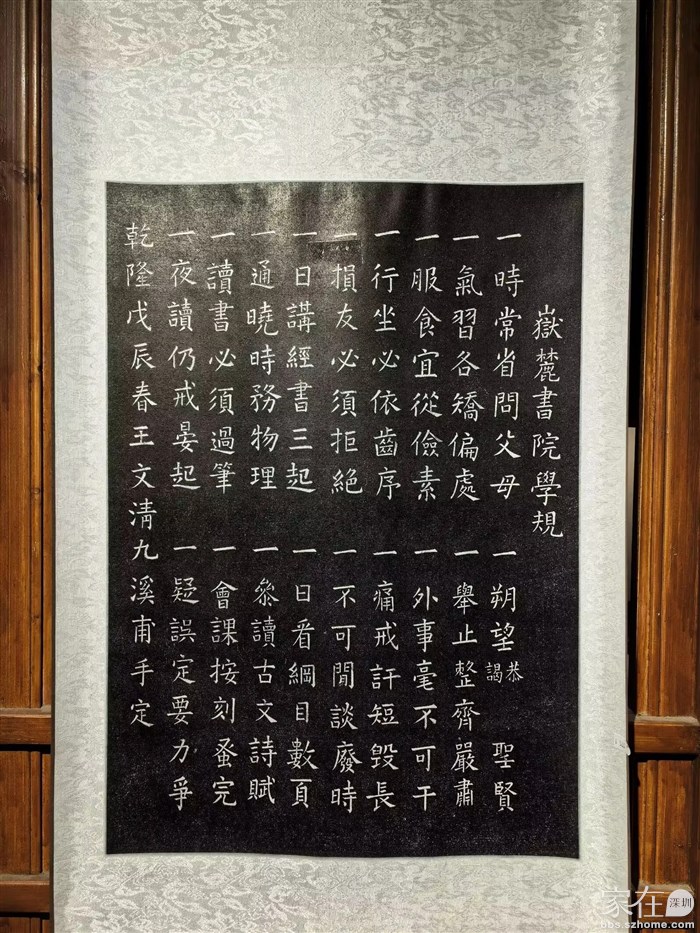 嶽麓書院學規
一時常省問父母 一朔望恭謁 聖賢
一氣習各矯偏處 一舉止整齊嚴肅
一服食宜從儉素 一外事毫不可干
一行坐必依齒序 一痛戒訐短毀長
一損友必須拒絕 一不可閒談廢時
一日講經書三起 一日看綱目數頁
一通曉時務物理 一參讀古文詩賦
一讀書必須過筆 一會課按刻蚤完
一夜讀仍戒晏起 一疑誤定要力爭
乾隆戊辰春王文清九溪甫手定
家在深圳
bbs.szhome.com